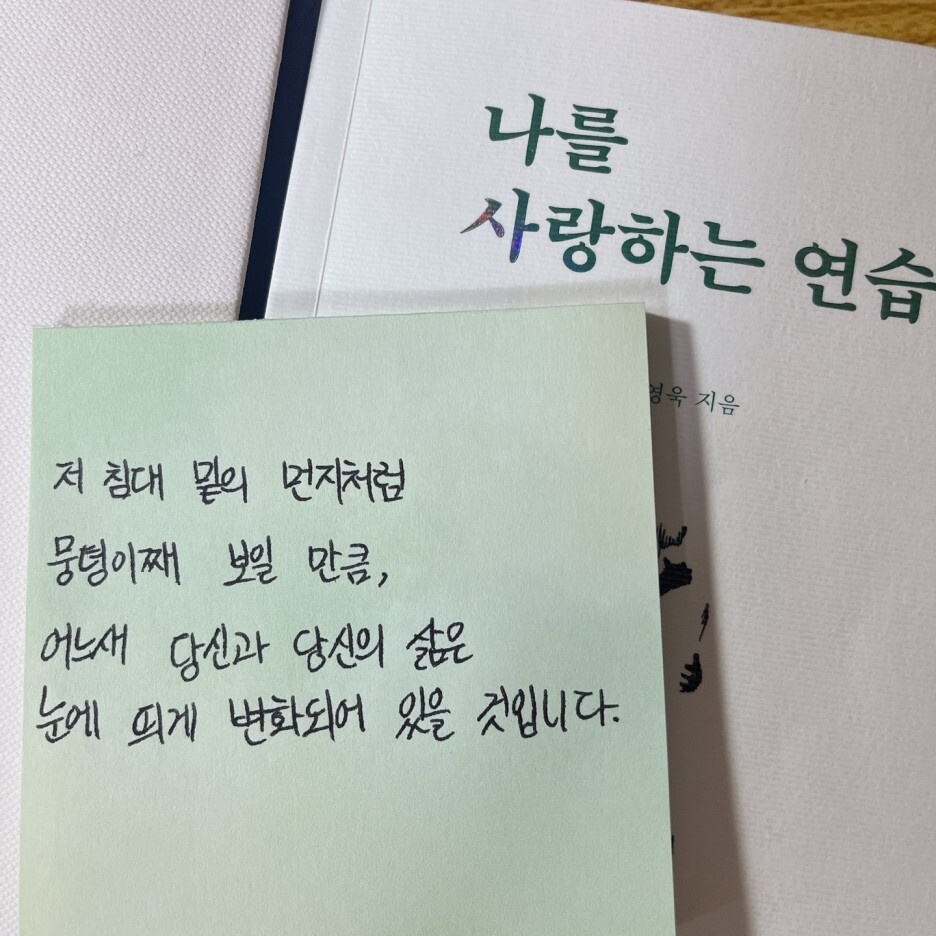 나를
사랑하는 연습
영욱 지음
저 침대 밑의 먼지처럼
뭉텅이째 보일 만큼,
어느새 당신과 당신의 삶은
눈에 띄게 변화되어 있을 것입니다.